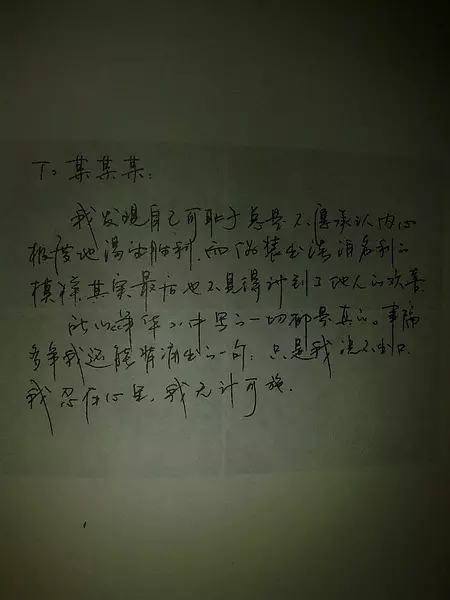 To 某某某：
我发现自己可耻于总是不愿承认内心
极度地渴望胜利，而假装出淡泊名利的
模样其实最后也不见得讨到了他人的欢喜
中写的一切都是真的。事隔
多年我还能背诵出的一句：只是我说不出口
我忍在心里，我无计可施.